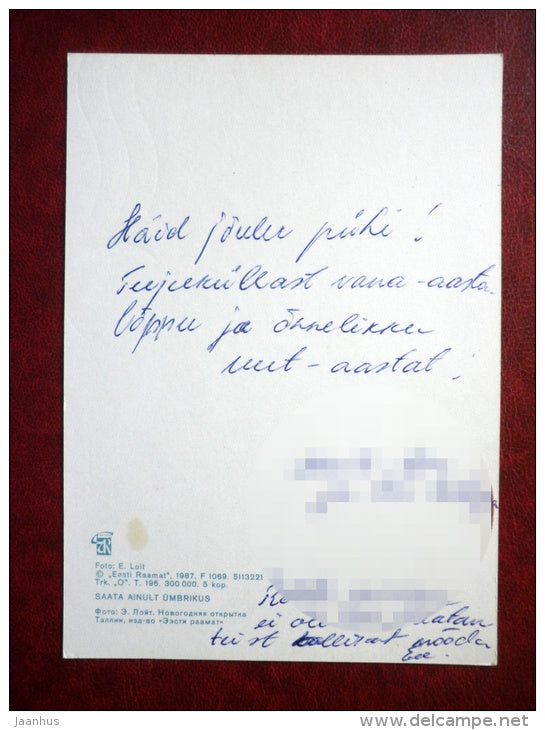 Häid jõulu pühi!
Tujuküllast vana-aasta
lõppu ja õnnelikku
uut-aastat!
Foto: E. Loit
© „Eesti Raamat”, 1987. F 1069. 5113221
Trk. „O”. T. 196. 300 000. 5 kop.
SAATA AINULT ÜMBRIKUS
Фото: Э. Лойт. Новогодняя открытка
Таллин, изд-во «Ээсти раамат»
ei
teist mööda
jaanhus
www.delcampe.net